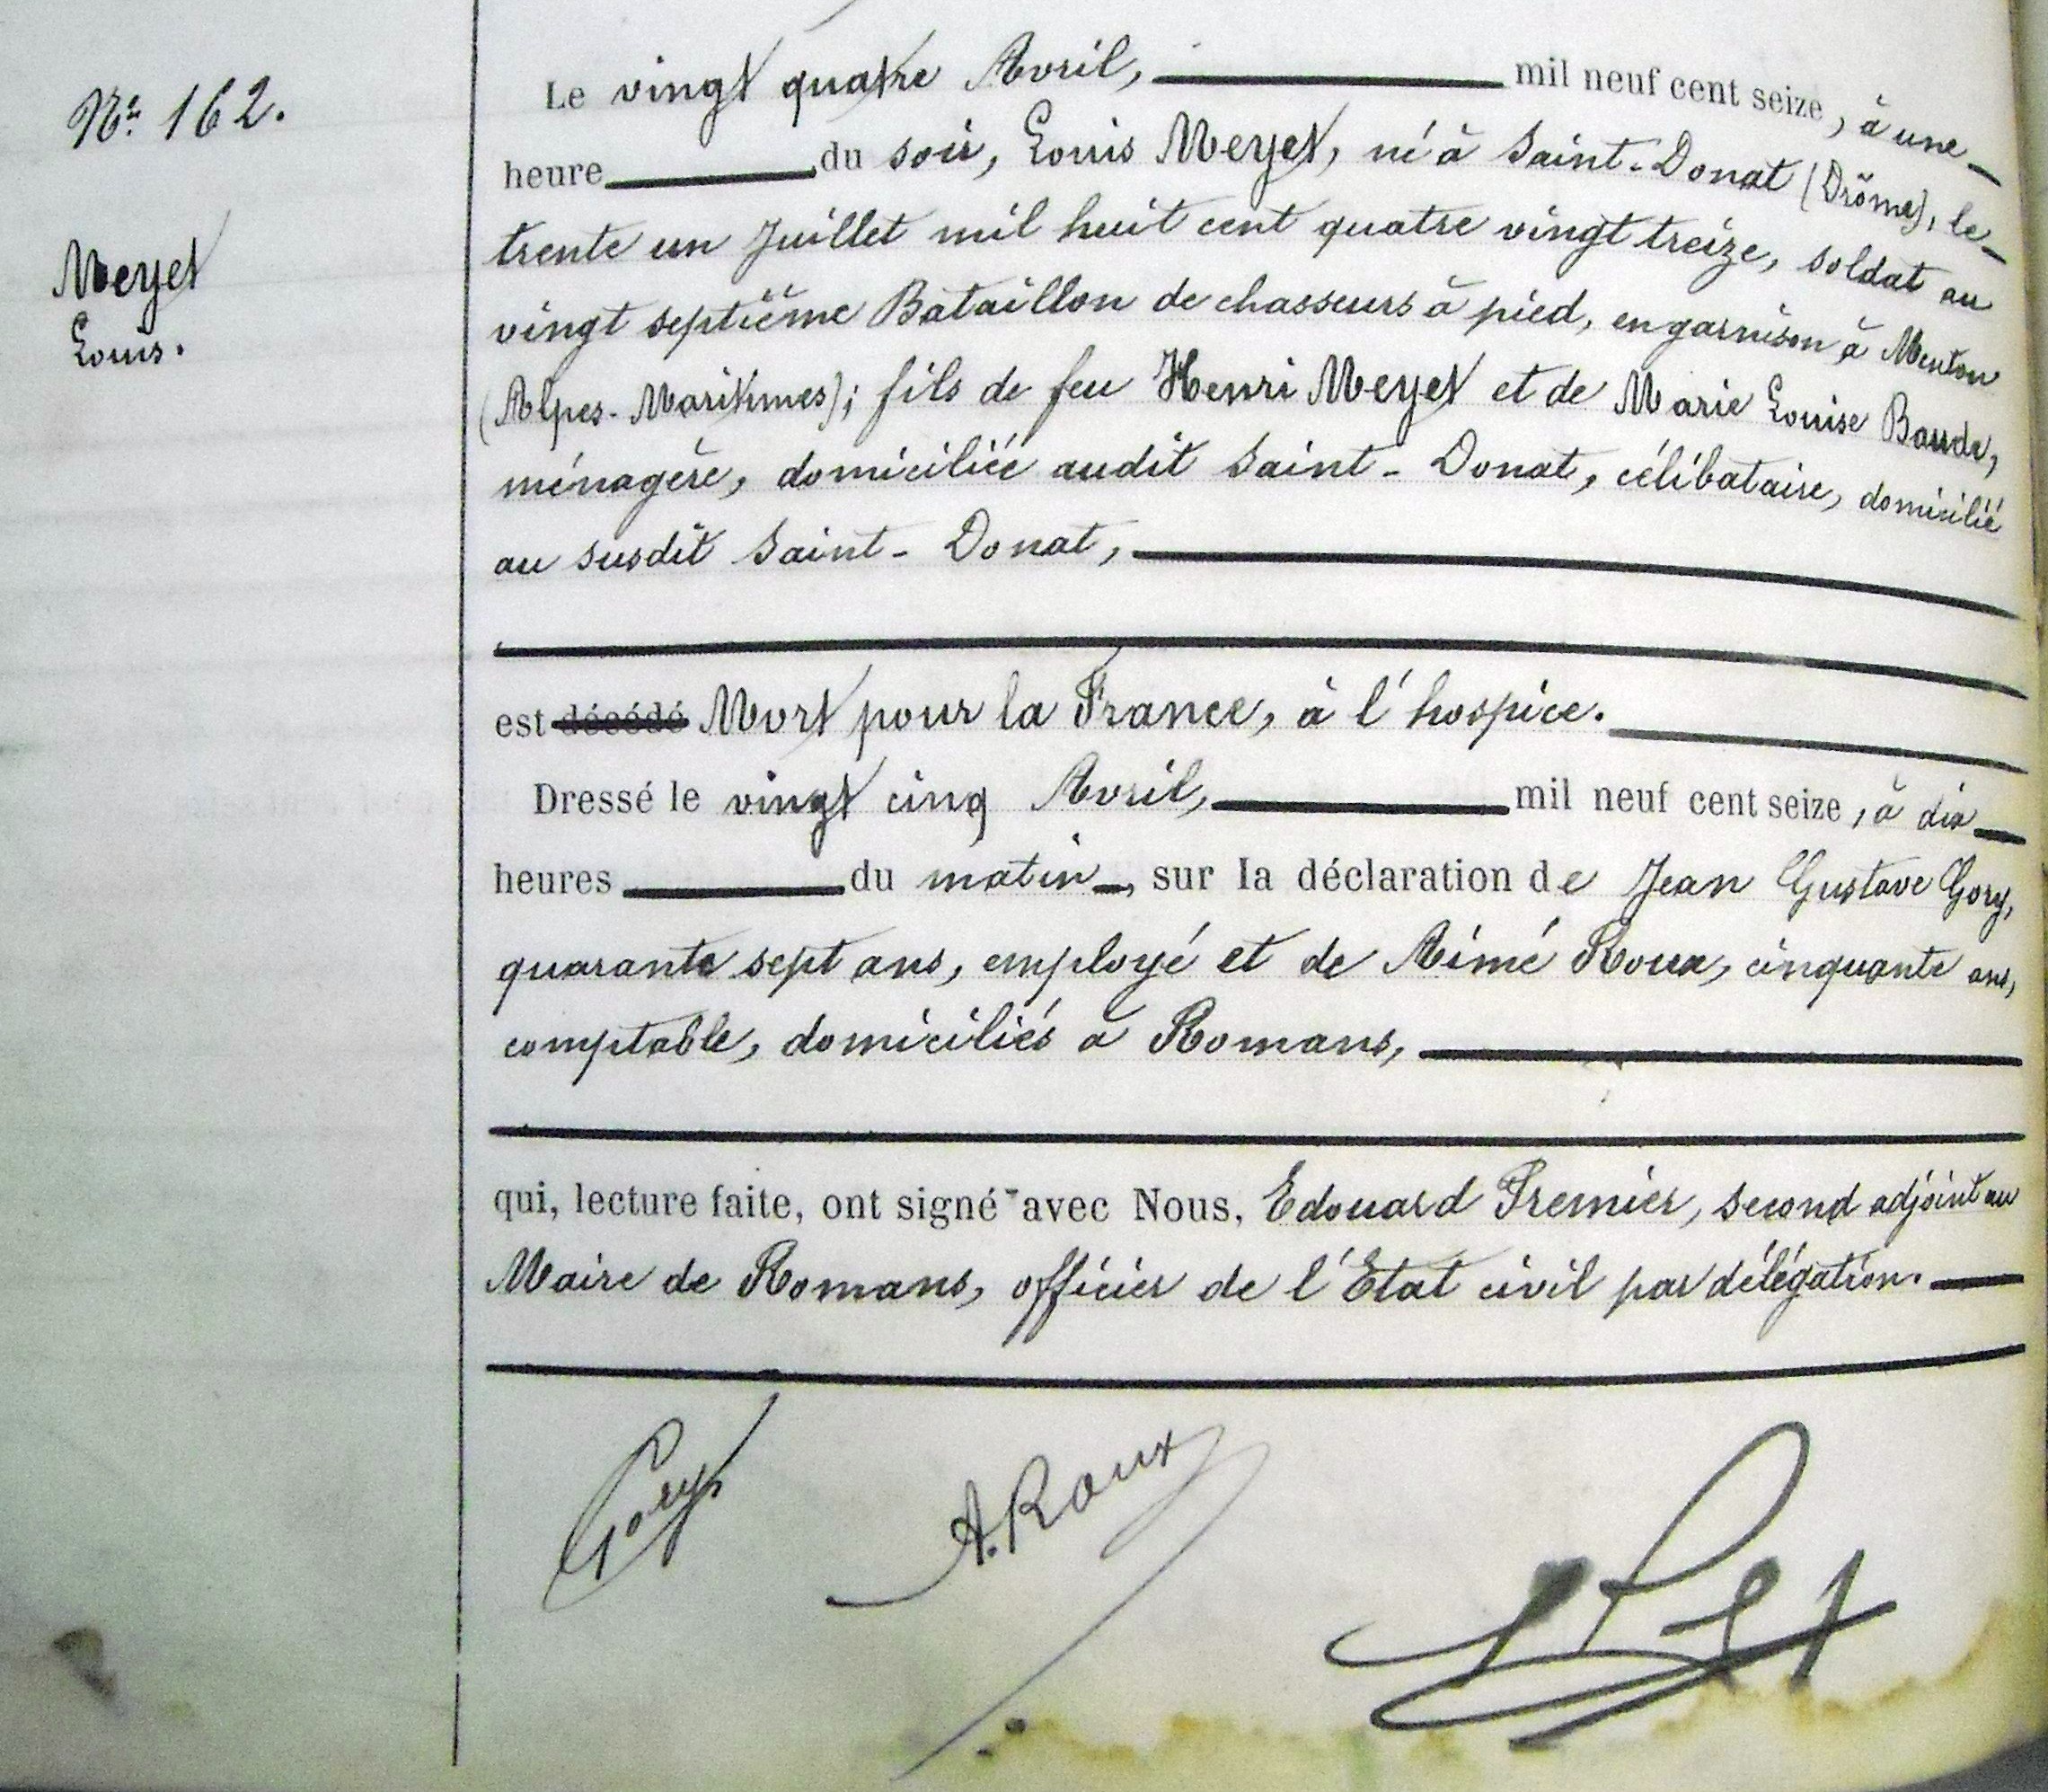 No 162.
Meyet
Louis.
Le vingt quatre Avril, mil neuf cent seize, à une
heure du soir, Louis Meyet, né à Saint-Donat (Drôme), le
trente un Juillet mil huit cent quatre vingt treize, soldat au
vingt septième Bataillon de chasseurs à pied, en garnison à Menton
(Alpes-Maritimes); fils de feu Henri Meyet et de Marie Louise Baude,
ménagère, domiciliée audit Saint-Donat, célibataire, domicilié
au susdit Saint-Donat,
est décédé Mort pour la France, à l'hospice.
Dressé le vingt cinq Avril, mil neuf cent seize, à dix
heures du matin, sur la déclaration de Jean Gustave Gory,
quarante sept ans, employé et de Aimé Roux, cinquante ans,
comptable, domiciliés à Romans,
qui, lecture faite, ont signé avec Nous, Edouard Premier, second adjoint au
Maire de Romans, officier de l'Etat civil par délégation.
Gory
A. Roux